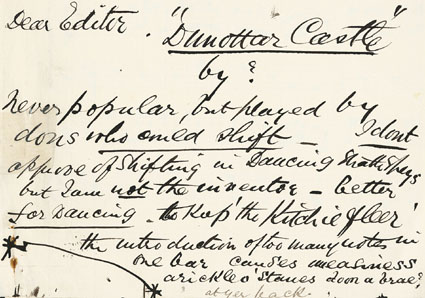 Dear Editor. "Dunottar Castle"
by?
Never popular, but played by
dons who could shift – I dont
approve of shifting in Dancing Strathspeys
but I am not the inventor – better
for dancing – to keep 'the Kitchie fleer'
the introduction of too many notes in
one bar causes uneasiness
a rickle o' stanes doon a brae,
at yer back.